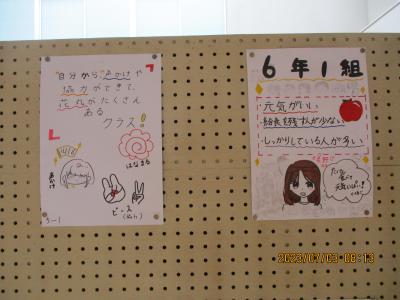 "自分から"声かけや
協力ができて、
花丸がたくさん
ある
クラス!
はなまる
ピース
5-1
6年1組
・元気がいい
・給食を残す人が少ない
・しっかりしている人が多い
2023/07/03 08:13